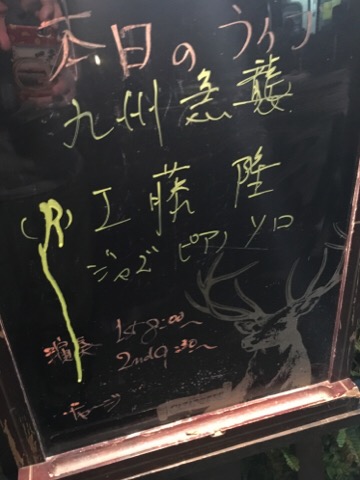 本日のライブ
九州急襲
(P) 工藤 隆
ジャズ ピアノ ソロ
演奏 1st 8:00〜
2nd 9:30〜
チャージ